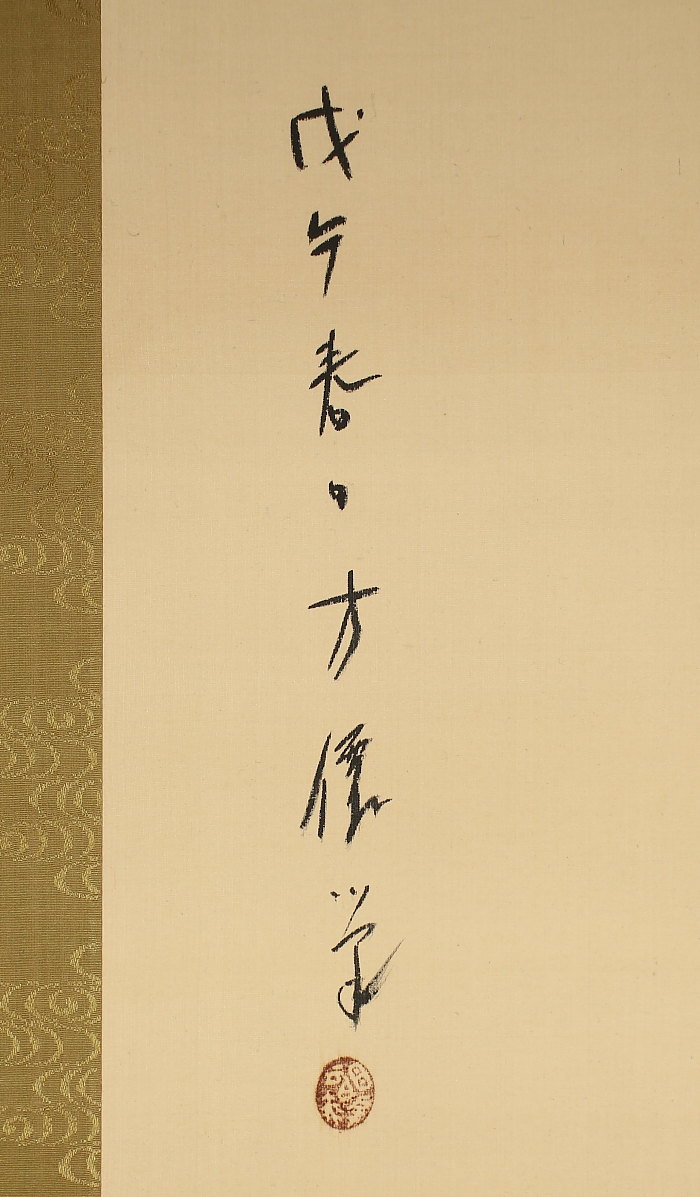 戊午春日方僊